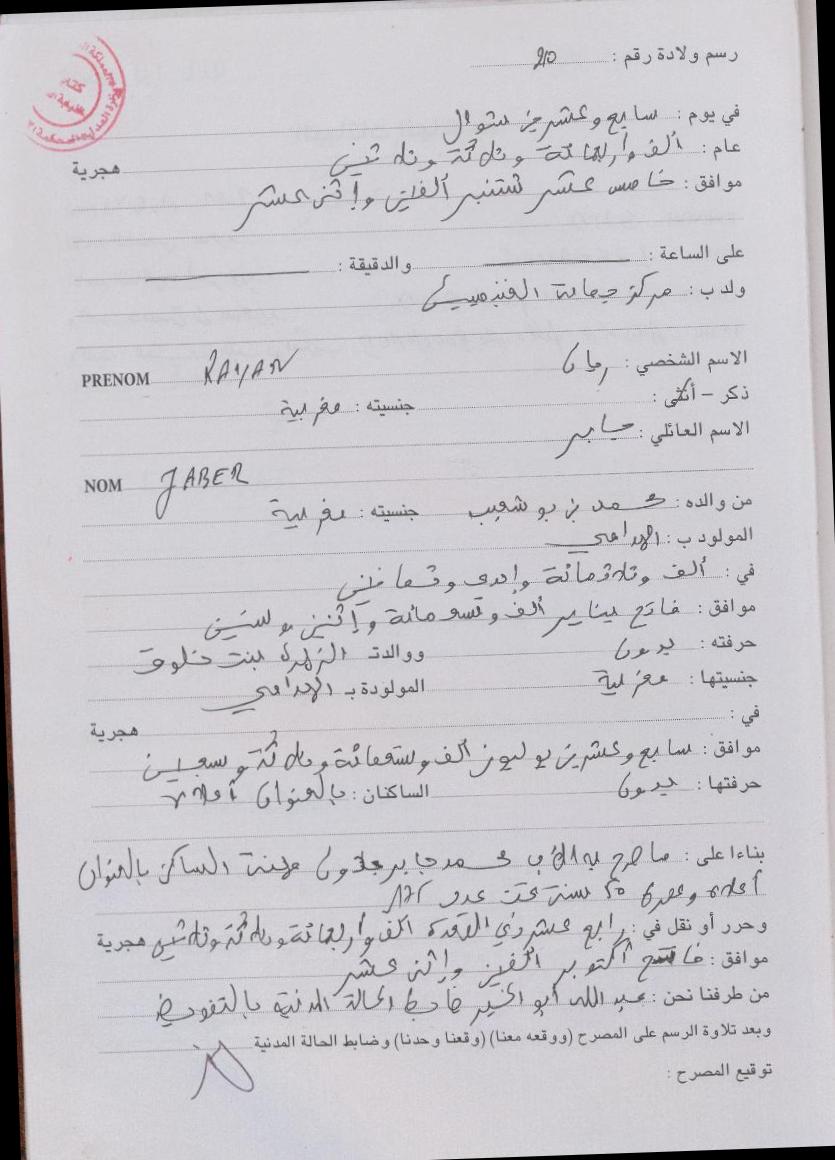 رسم ولادة رقم : 210
في يوم : سابع وعشرين شوال
عام : ألف وأربعمائة وثلاثة وثلاثين هجرية
موافق : خامس عشر شتنبر ألفين وإثنى عشر
على الساعة : والدقيقة :
ولد ب : مركز جماعة الغنيميين
الاسم الشخصي : ريان RAYAN PRENOM
ذكر - أنثى : جنسيته : مغربية
الاسم العائلي : جابر
JABER NOM
من والده : محمد بن بوشعيب جنسيته : مغربية
المولود ب :
في : ألف وثلاثمائة وإحدى وثمانين
موافق : فاتح يناير ألف وتسعمائة وإثنين وستين
حرفته : بدون ووالدته الزهرة بنت خلوق
جنسيتها : مغربية المولودة بـ
في : هجرية
موافق : سابع وعشرين يوليوز ألف وتسعمائة وثلاثة وسبعين
حرفتها : بدون الساكنان : بالعنوان أعلاه
بناءا على : ما صرح به الأب محمد جابر بدون مهنة الساكن بالعنوان
أعلاه وعمره 50 سنة تحت عدد
وحرر أو نقل في : رابع عشر ذي القعدة ألف وأربعمائة وثلاثة وثلاثين هجرية
موافق : فاتح أكتوبر ألفين وإثنى عشر
من طرفنا نحن : عبد الله أبو الخير ضابط الحالة المدنية بالتفويض
وبعد تلاوة الرسم على المصرح (ووقعه معنا) (وقعنا وحدنا) وضابط الحالة المدنية
توقيع المصرح :